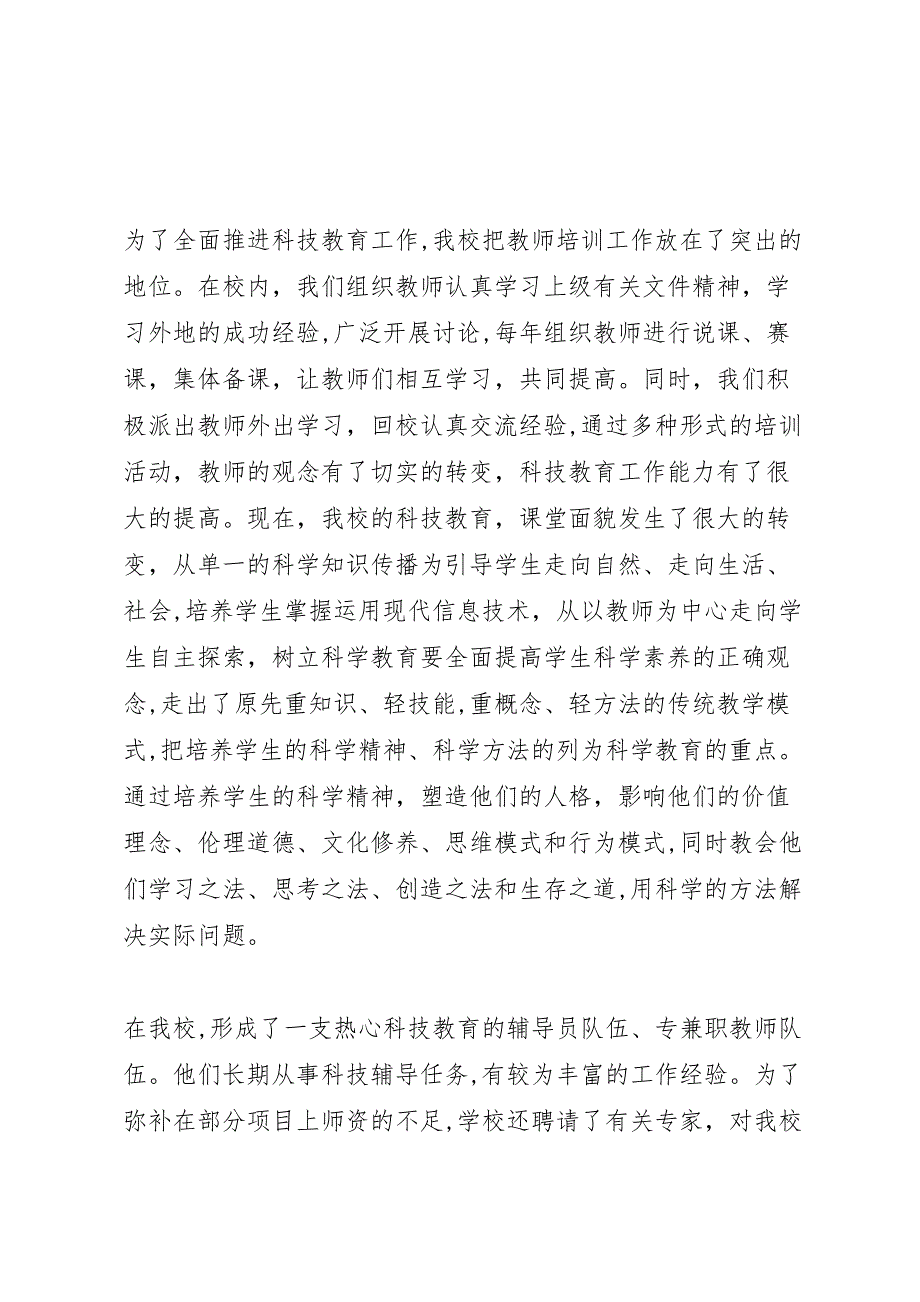 为了全面推进科技教育工作,我校把教师培训工作放在了突出的
地位。在校内，我们组织教师认真学习上级有关文件精神，学
习外地的成功经验,广泛开展讨论,每年组织教师进行说课、赛
课，集体备课，让教师们相互学习，共同提高。同时，我们积
极派出教师外出学习，回校认真交流经验,通过多种形式的培训
活动，教师的观念有了切实的转变，科技教育工作能力有了很
大的提高。现在，我校的科技教育，课堂面貌发生了很大的转
变，从单一的科学知识传播为引导学生走向自然、走向生活、
社会,培养学生掌握运用现代信息技术，从以教师为中心走向学
生自主探索，树立科学教育要全面提高学生科学素养的正确观
念,走出了原先重知识、轻技能,重概念、轻方法的传统教学模
式,把培养学生的科学精神、科学方法的列为科学教育的重点。
通过培养学生的科学精神，塑造他们的人格，影响他们的价值
理念、伦理道德、文化修养、思维模式和行为模式,同时教会他
们学习之法、思考之法、创造之法和生存之道,用科学的方法解
决实际问题。
在我校,形成了一支热心科技教育的辅导员队伍、专兼职教师队
伍。他们长期从事科技辅导任务,有较为丰富的工作经验。为了
弥补在部分项目上师资的不足,学校还聘请了有关专家，对我校